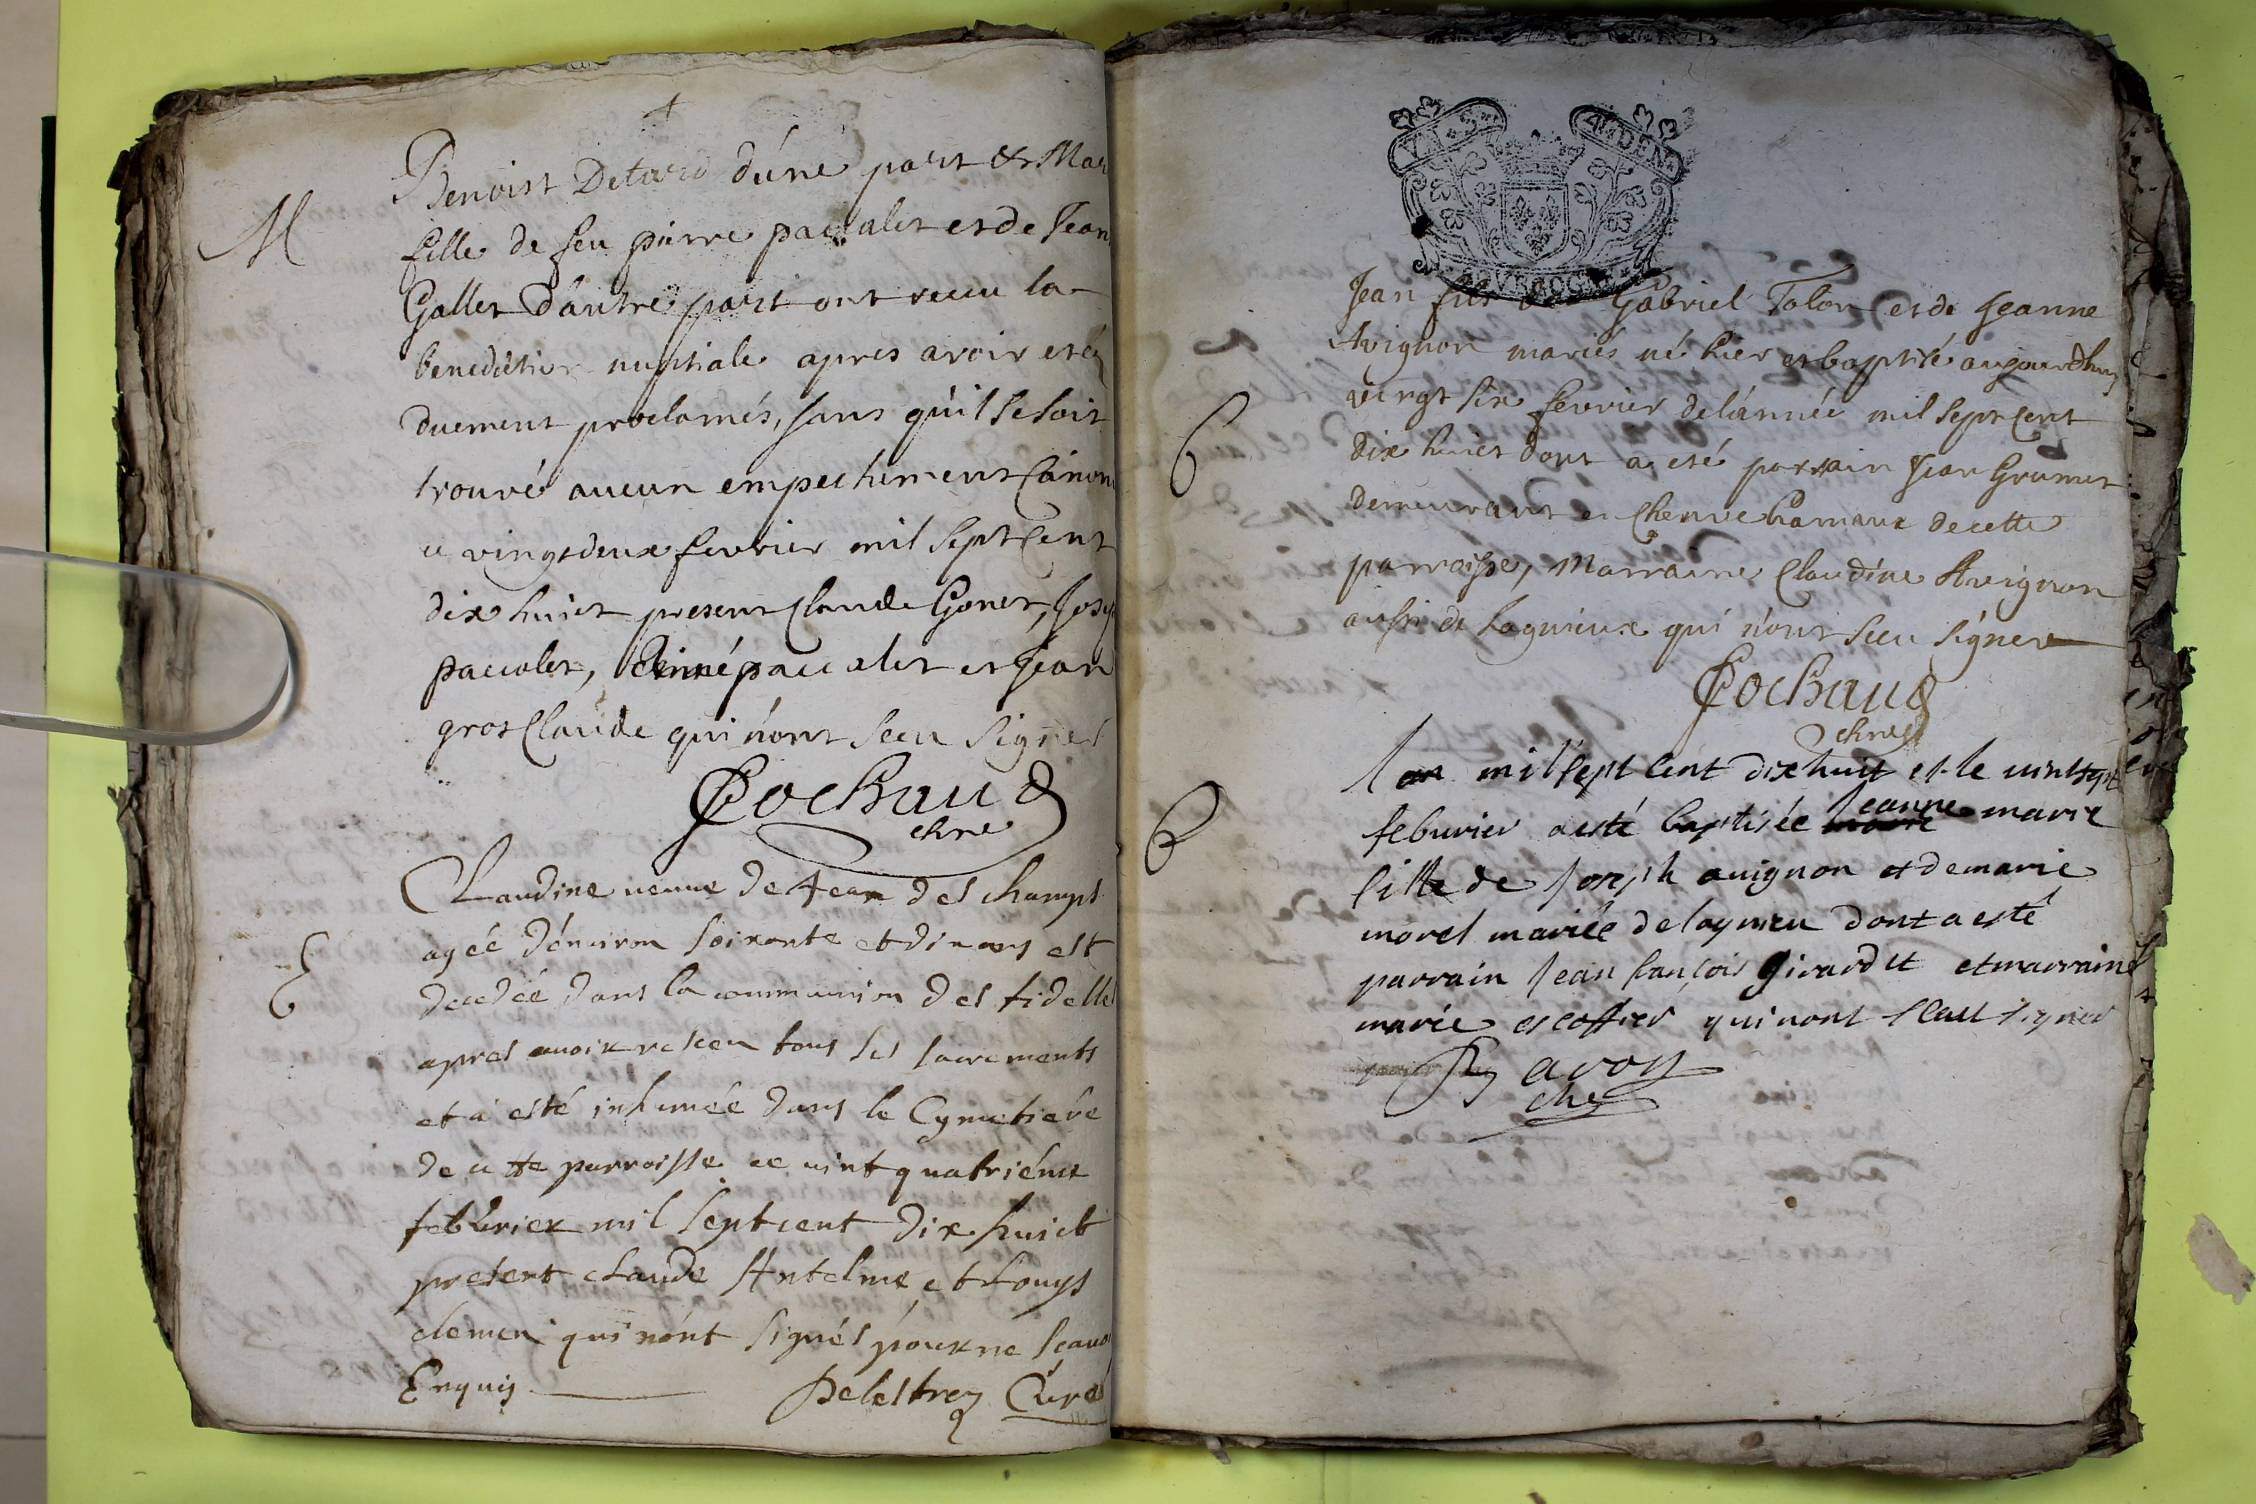 M
Benoist Detard d'une part et Mar
fille de feu pierre paccalet et de Jean
Gallet d'autre part ont receu la
benediction nuptiale apres avoir esté
duement proclamés, sans qu'il se soit
trouvé aucun empechement Canon
ce vingt deux fevrier mil sept Cent
dix huict present Claude Gonet, Jose
paccalet, paccalet et Jean
gros Claude qui n'ont sceu signer
Cochaud
chne
E
Claudine veuve de Jean des champs
agée d'environ soixante et dix ans est
decedée dans la communion des fidelle
apres avoir reseeu tous ses sacrements
et a esté inhumée dans le Cymetiere
de cette parroisse ce vint quatriéme
febvrier mil sept cent dix huict
present claude Antelme et Louys
clemen qui n'ont signés pour ne scavo
Enquis Delestrey Curé
Jean fils Gabriel Tolon et de Jeanne
B
Avignon mariés né hier et baptisé aujourdhuy
vingt six fevrier de l'année mil sept Cent
dix huict dont a esté parrain Jean Grumet
demeurant en hamaux de cette
parroisse, Marraine Claudine Avignon
aussi de Lagnieux qui n'ont sceu signer
Cochaud
chne
B
lan mil sept cent dix huit et le vint sept
feburier a esté baptisée Jeanne marie
fille de Joseph avignon et de marie
morel mariée de lagnieu dont a esté
parrain Jean françois Girardet et marraine
marie escoffier qui nont sceu signer
ch